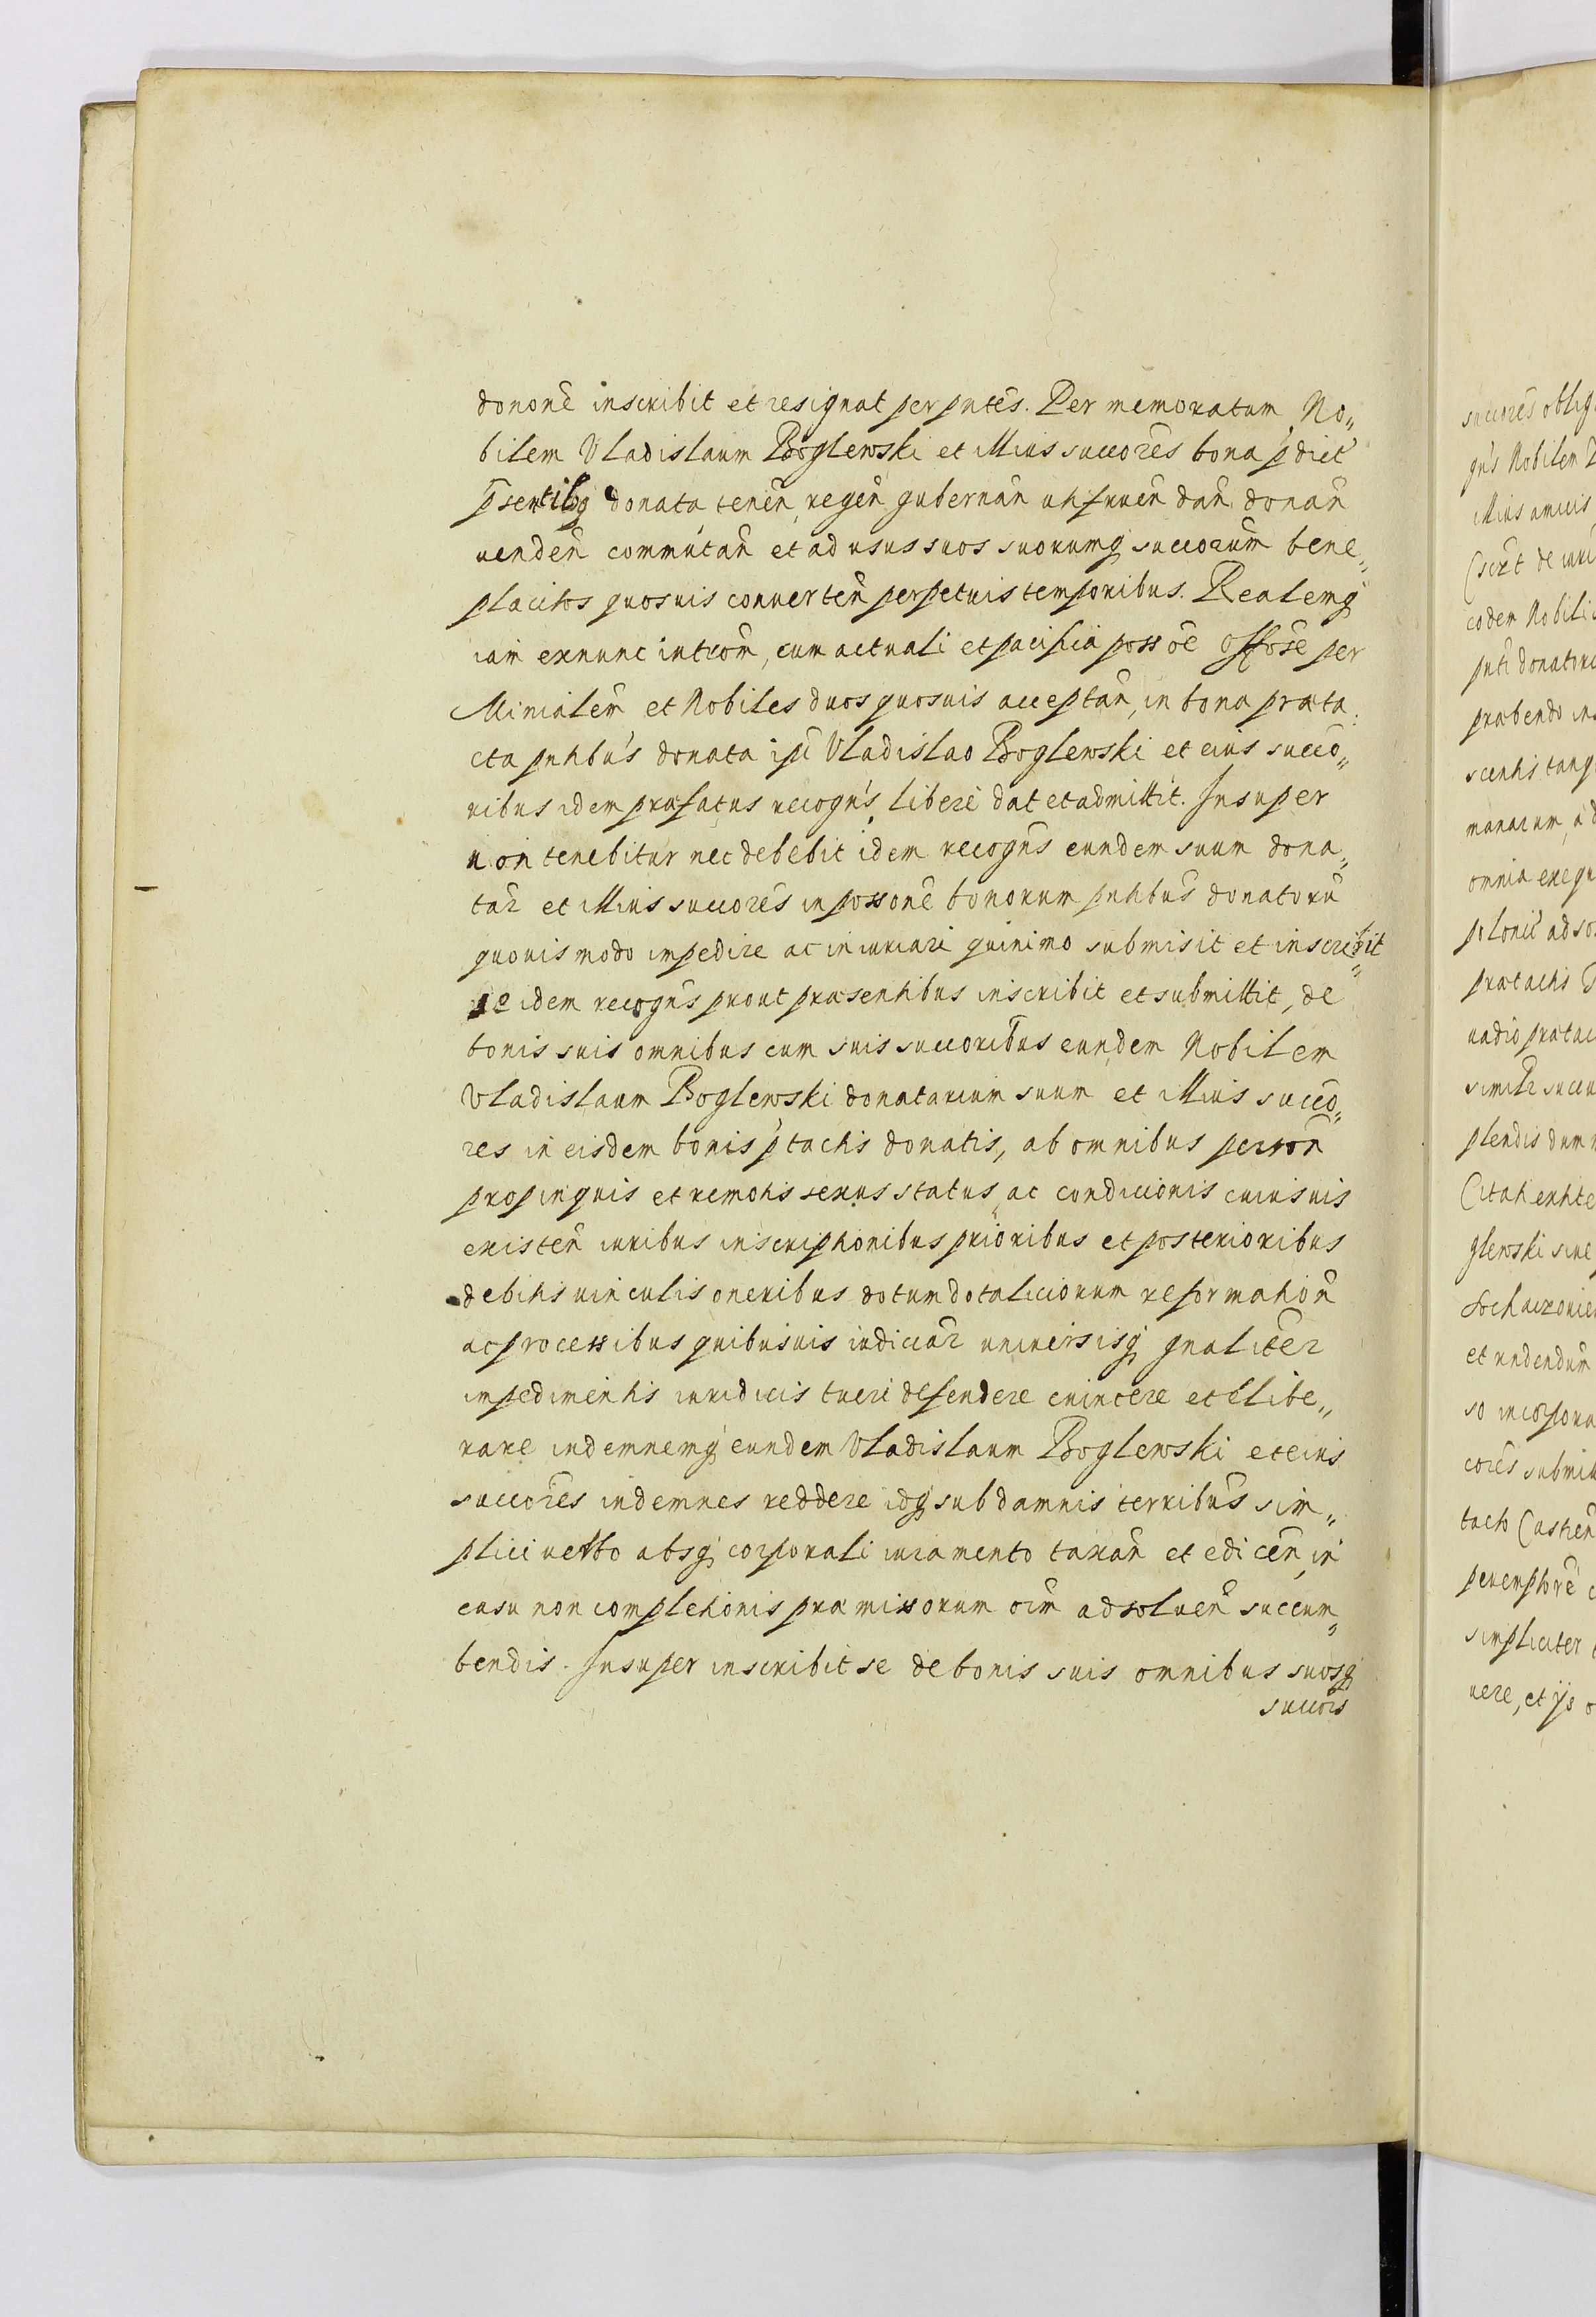 dononē inscribit et resignat per pntēs. Per memoratum No„
bilem Vladislaum Boglewski et illius succorēs bona p̄dict
p̄sentibq donata tenēn regēn gubernān utifruēn dān donān
uendēn commutān et ad usus suos suorumq succorūm bene„
placitos quosuis conuertēn perpetuis temporibus. Realemq
iam exnunc introm̄, cum actuali et pacifica possoē offosē per
Minialēm et Nobiles duos quosuis acceptān, in bona præta:
cta pntibūs donata ipi Vladislao Boglewski et eius succo„
ribus idem præfatus recogn̄s libere dat et admittit. Insuper
non tenebitur nec debebit idem recogn̄s eundem suum dona„
tar̄ et illius succorēs in possonē bonorum pntibūs donatorū
quouis modo impedire ac iniuriari quinimo submisit et inscribit„
se idem recogn̄s prout præsentibus inscribit et submittit, de
bonis suis omnibus cum suis succoribus eundem Nobilem
Vladislaum Boglewski donatarium suum et illius succo„
res in eisdem bonis p̄tactis donatis, ab omnibus person̄
propinquis et remotis sexus status ac condicionis cuiusuis
existēn iuribus inscriptionibus prioribus et posterioribus
debitis uinculis oneribus dotum dotaliciorum reformatiōn
ac processibus quibusuis iudiciār uniuersisq gnaliter
impedimentis iuridicis tueri defendere euincere et elibe„
rare indemnemq eundem Vladislaum Boglewski et eius
succorēs indemnes reddere idq sub damnis terribūs sim„
plici uerbo absq corporali iuramento taxān et edicēn, in
casu non completionis præmissorum oīm adsoluēn succum„
bendis. Insuper inscribit se de bonis suis omnibus suosq
succors
succorēs oblig
gn̄s Nobilem
illius amicis
eodem Nobili
pnti donator
præbendo in
omnia exequ
prætactis
plendis dum
glewski siue
et
tacto Castren
simpliciter
uere, et ijs